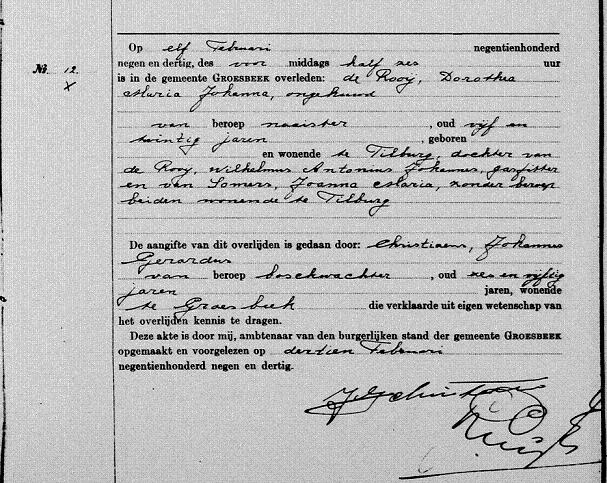 Nº. 12.
×
Op elf Februari negentienhonderd
negen en dertig, des voor middags half zes uur
is in de gemeente GROESBEEK overleden: de Rooij, Dorothea
Maria Johanna, ongehuwd
van beroep naaister, oud vijf en
twintig jaren, geboren
en wonende te Tilburg, dochter van
de Rooy, Wilhelmus Antonius Johannes, gasfitter
en van Somers, Joanna Maria, zonder beroep
beiden wonende te Tilburg
De aangifte van dit overlijden is gedaan door: Christiaens, Johannes
Gerardus
van beroep boschwachter, oud zes en vijftig
jaren jaren, wonende
te Groesbeek die verklaarde uit eigen wetenschap van
het overlijden kennis te dragen.
Deze akte is door mij, ambtenaar van den burgerlijken stand der gemeente GROESBEEK
opgemaakt en voorgelezen op dertien Februari
negentienhonderd negen en dertig.